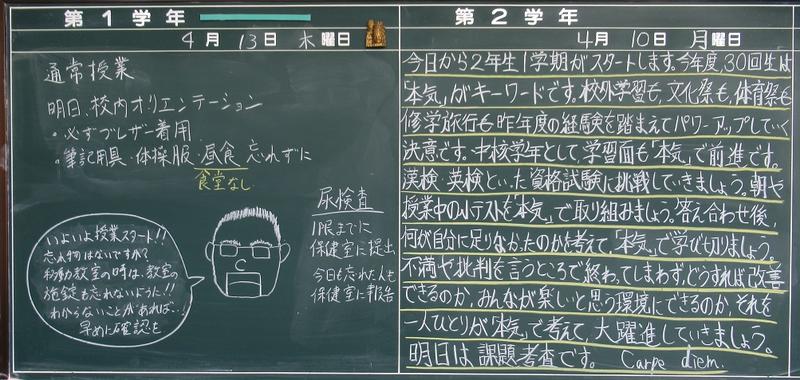 第1学年
4月13日 木曜日
通常授業
明日、校内オリエンテーション
・必ずブレザー着用
・筆記用具・体操服・昼食 忘れずに
食堂なし
尿検査
1限までに
保健室に提出
今日も忘れた人も
保健室に報告
いよいよ授業スタート!!
忘れ物はないですか?
移動教室の時は、教室の
施錠も忘れないように!!
わからないことがあれば…
早めに確認を
第2学年
4月10日 月曜日
今日から2年生1学期がスタートします。今年度、30回生は
「本気」がキーワードです。校外学習も、文化祭も、体育祭も
修学旅行も昨年度の経験を踏まえてパワーアップしていく
決意です。中核学年として、学習面も「本気」で前進です。
漢検・英検といった資格試験に挑戦していきましょう。朝や
授業中の小テストを「本気」で取り組みましょう。答え合わせ後、
何が自分に足りなかったのかを考えて、「本気」で学び切りましょう。
不満や批判を言うところで終わってしまわず、どうすれば改善
できるのか、みんなが楽しいと思う環境にできるのか、それを
一人ひとりが「本気」で考えて、大躍進していきましょう。
明日は課題考査です。 Carpe diem.